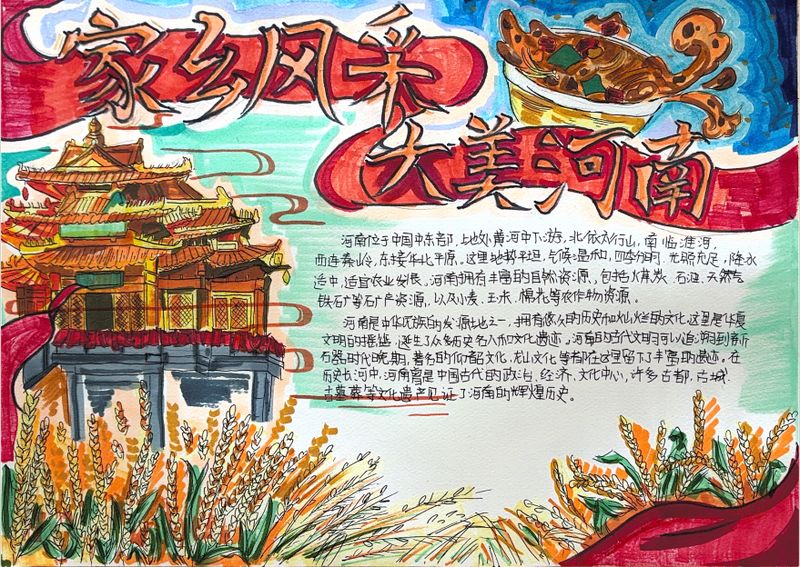 家乡风采
大美河南
河南位于中国中东部，地处黄河中下游，北依太行山，南临淮河，
西连秦岭，东接华北平原，这里地势平坦，气候温和，四季分明，光照充足，降水
适中，适宜农业发展，河南拥有丰富的自然资源，包括煤炭、石油、天然气
铁矿等矿产资源，以及小麦、玉米、棉花等农作物资源。
河南是中华民族的发源地之一，拥有悠久的历史和灿烂的文化，这里是华夏
文明的摇篮，诞生了众多历史名人和文化遗迹，河南的古代文明可以追溯到新
石器时代晚期，著名的仰韶文化、龙山文化等都在这里留下了丰富的遗迹。在
历史长河中，河南曾是中国古代的政治、经济、文化中心，许多古都、古城、
古墓葬等文化遗产见证了河南的辉煌历史。